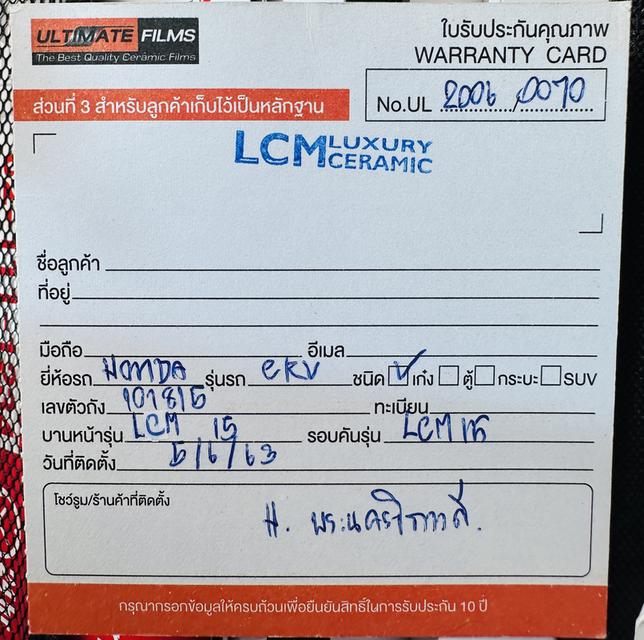 ULTIMATE FILMS
The Best Quality Ceramic Films
ใบรับประกันคุณภาพ
WARRANTY CARD
ส่วนที่ 3 สำหรับลูกค้าเก็บไว้เป็นหลักฐาน
No.UL 2006/0070
LCM LUXURY CERAMIC
ชื่อลูกค้า
ที่อยู่
มือถือ อีเมล
ยี่ห้อรถ HONDA รุ่นรถ CRV ชนิด เก๋ง ตู้ กระบะ SUV
เลขตัวถัง 101815 ทะเบียน
บานหน้ารุ่น LCM 15 รอบคันรุ่น LCM 15
วันที่ติดตั้ง 5/6/63
โชว์รูม/ร้านค้าที่ติดตั้ง
H. พระนคร
กรุณากรอกข้อมูลให้ครบถ้วนเพื่อยืนยันสิทธิ์ในการรับประกัน 10 ปี